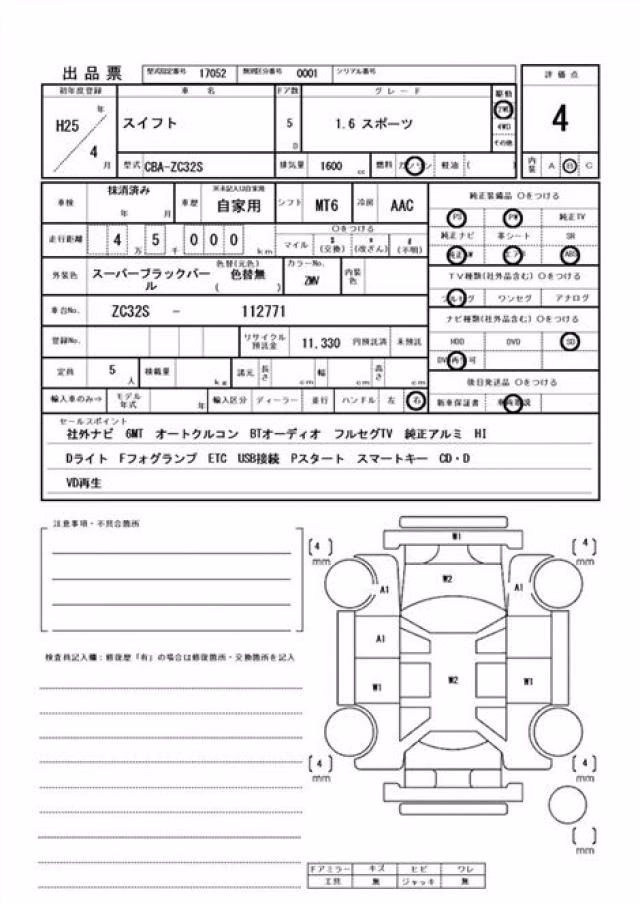 出品票 型式指定番号 17052 類別区分番号 0001 シリアル番号
初年度登録 車名 ドア数 グレード 駆動 評価点
H25年4月 スイフト 5D 1.6 スポーツ 2WD 4WD その他 4
型式 CBA-ZC32S 排気量 1600cc 燃料 ガソリン 軽油 ( ) 内装 A B C
車検 抹消済み 年 月 車歴 ※未記入は自家用 自家用 シフト MT6 冷房 AAC
純正装備品 ○をつける
PS PW 純正TV
純正ナビ 革シート SR
純正AW エアB ABS
走行距離 4万5千000km ○をつける マイル $(交換) *(改ざん) #(不明)
外装色 スーパーブラックパール 色替(元色) 色替無 ( ) カラーNo. ZMV 内装色
TV種類(社外品含む) ○をつける
フルセグ ワンセグ アナログ
車台No. ZC32S - 112771
ナビ種類(社外品含む) ○をつける
HDD DVD SD
DVD再生可
登録No. リサイクル預託金 11,330 円預託済 未預託
定員 5人 積載量 kg 諸元 長さ cm 幅 cm 高さ cm
後日発送品 ○をつける
新車保証書
輸入車のみ⇒ モデル年式 年 輸入区分 ディーラー 並行 ハンドル 左 右
セールスポイント
社外ナビ 6MT オートクルコン BTオーディオ フルセグTV 純正アルミ HI
Dライト Fフォグランプ ETC USB接続 Pスタート スマートキー CD・D
VD再生
注意事項・不具合箇所
検査員記入欄:修復歴「有」の場合は修復箇所・交換箇所を記入
[4]mm W1 [4]mm
W2
A1 A1
A1
W1 W2 W1
[4]mm [4]mm
[ ]mm
ドアミラー キズ ヒビ ワレ
工具 無 ジャッキ 無